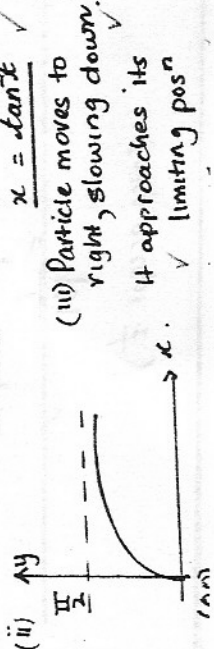 x = tan⁻¹t ✓
(ii)
y
π/2
x.
(iii) Particle moves to
right, slowing down. ✓
It approaches its
✓ limiting posⁿ